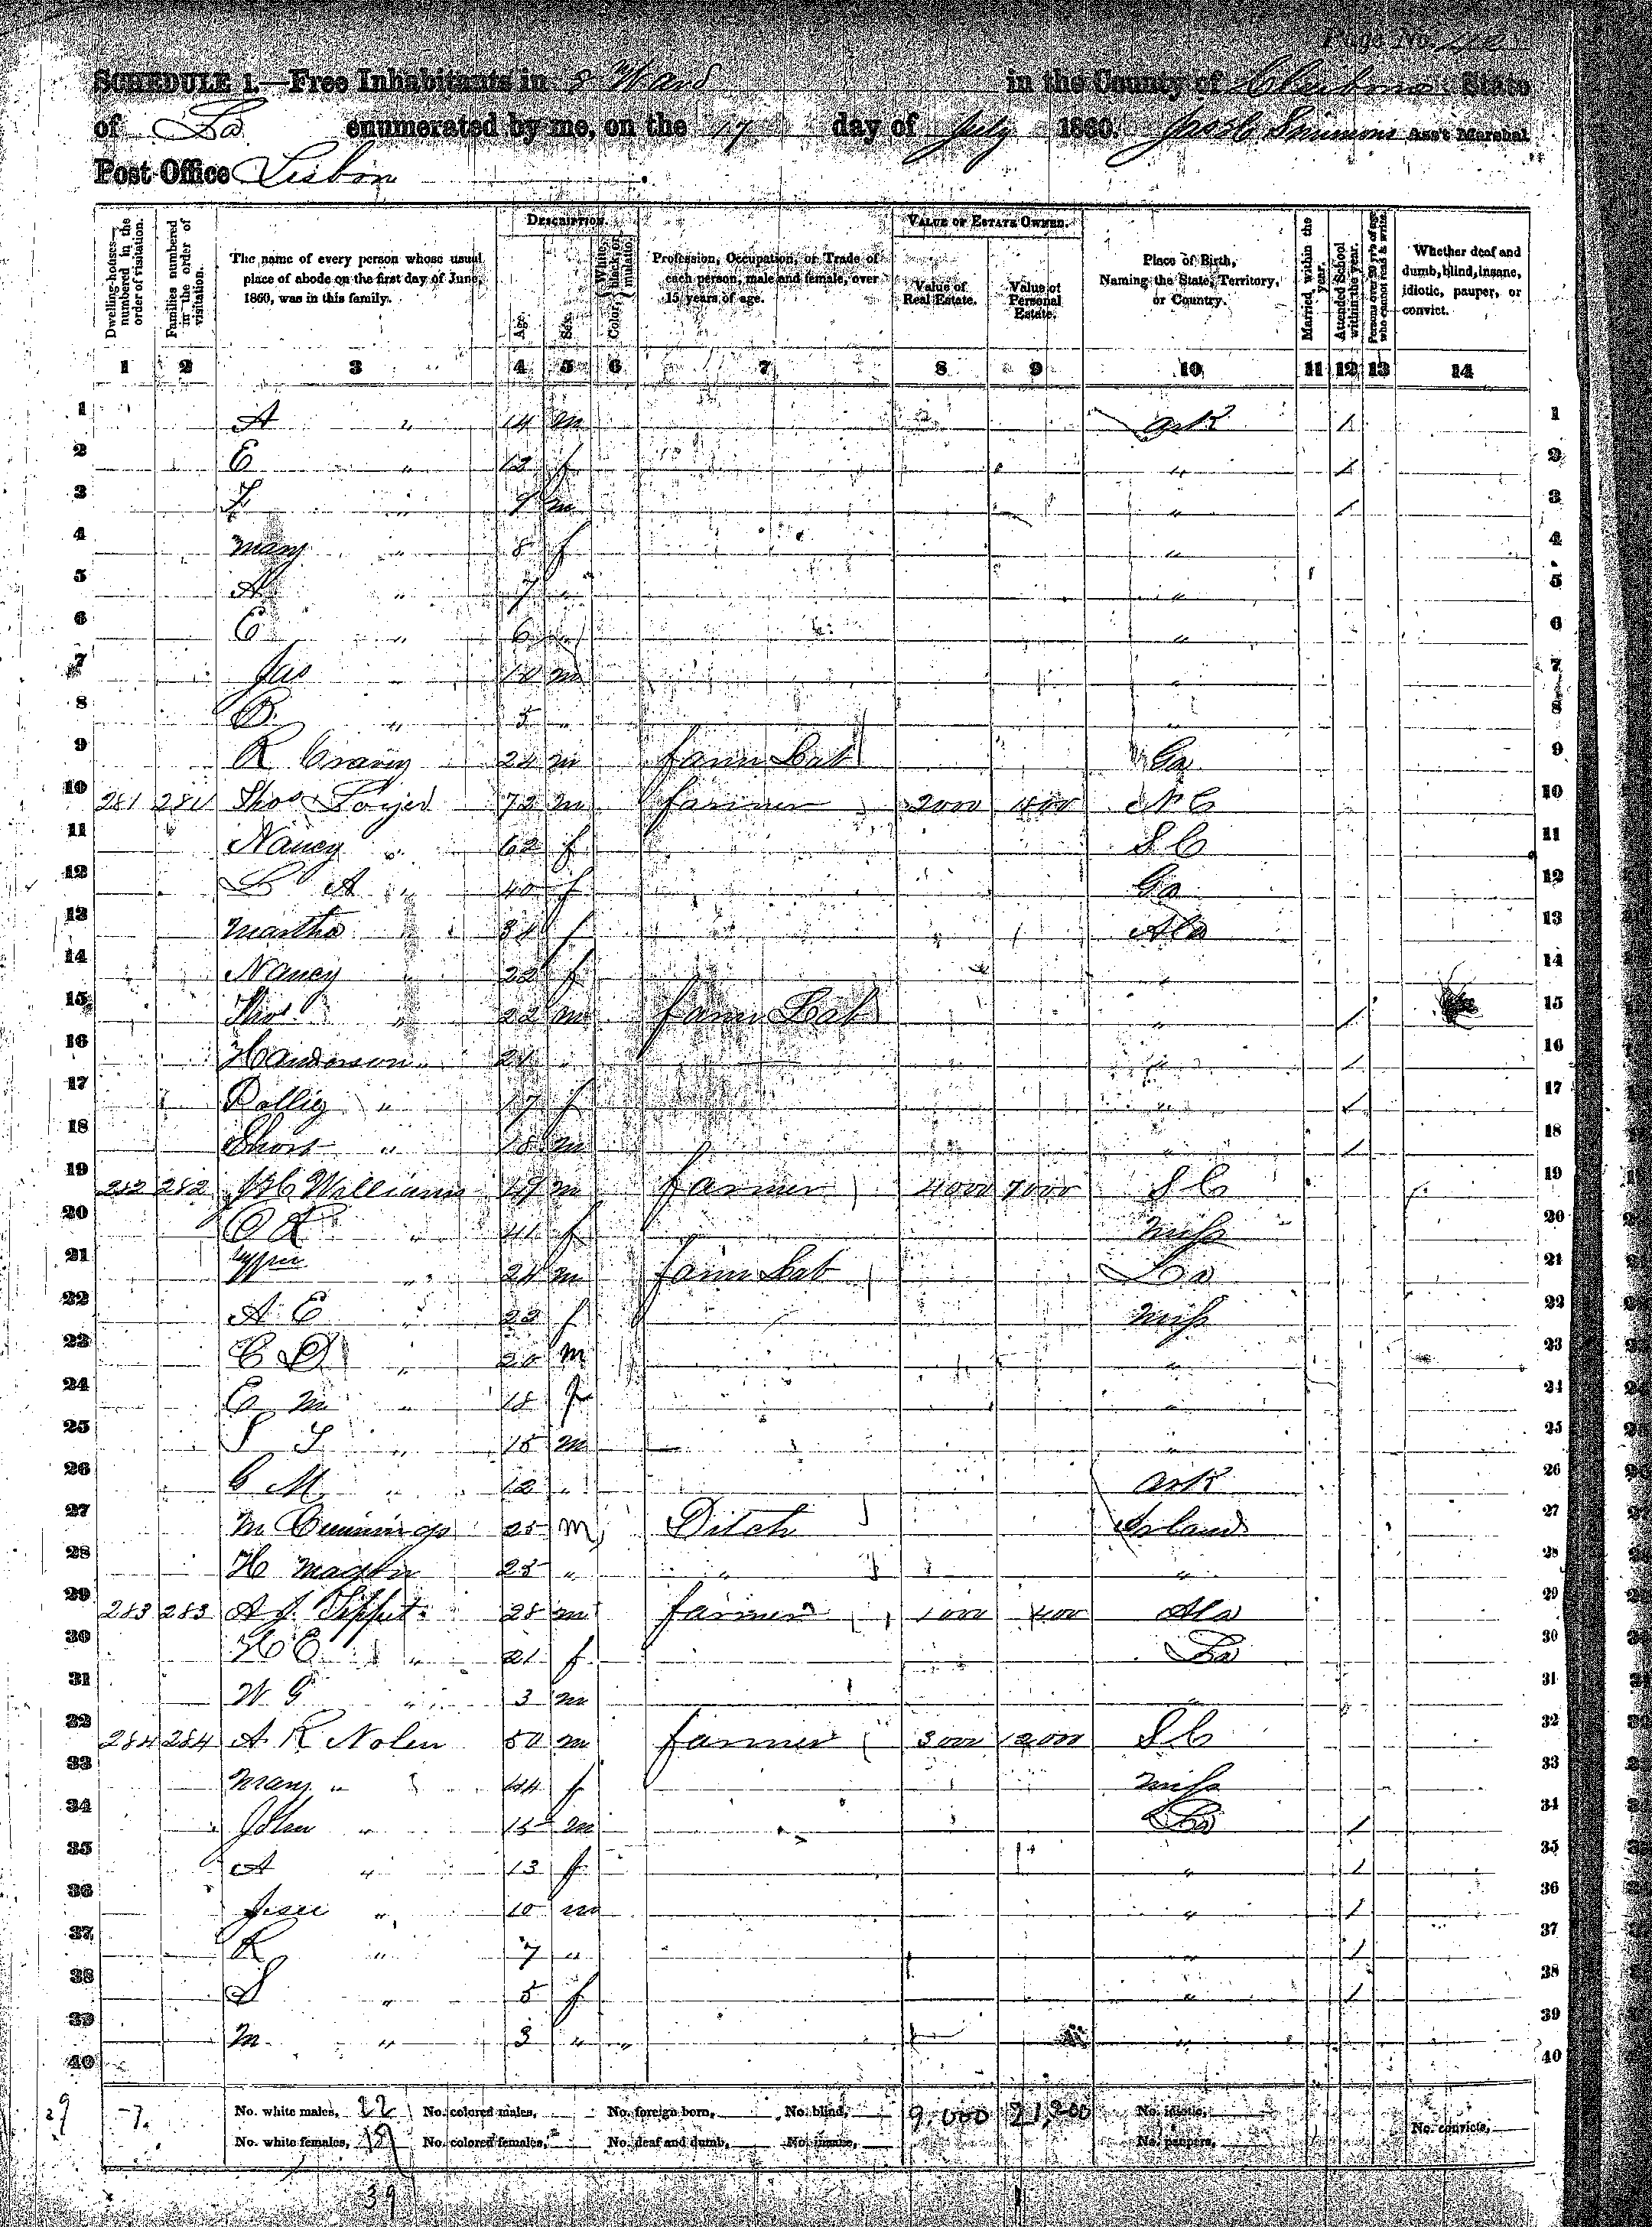 Page No. 42
SCHEDULE 1.—Free Inhabitants in 8 Ward in the County of Claiborne State
of La enumerated by me, on the 17 day of July 1860. Simmons Ass't Marshal
Post Office Lisbon
DESCRIPTION. VALUE OF ESTATE OWNED.
Dwelling-houses—numbered in the order of visitation. Families numbered in the order of visitation. The name of every person whose usual place of abode on the first day of June, 1860, was in this family. Age. Sex. Color, White, black, or mulatto. Profession, Occupation, or Trade of each person, male and female, over 15 years of age. Value of Real Estate. Value of Personal Estate. Place of Birth, Naming the State, Territory, or Country. Married within the year. Attended School within the year. Persons over 20 y'rs of age who cannot read & write. Whether deaf and dumb, blind, insane, idiotic, pauper, or convict.
1 2 3 4 5 6 7 8 9 10 11 12 13 14
1 A " 14 m Ark / 1
2 E " 12 f " / 2
3 " 9 m " / 3
4 Mary " 8 f " 4
5 A " 7 " " 5
6 E " 6 " 6
7 Jas " 10 m " 7
8 B " 5 " " 8
9 R Craven 24 m farm Lab Ga 9
10 281 281 Thos 72 m farmer 2000 400 N C 10
11 Nancy " 62 f S C 11
12 L A " 40 f Ga 12
13 Martha 34 f Ala 13
14 Nancy " 22 f " 14
15 Thos " 22 m farm Lab " / 15
16 Handerson " 21 " " / 16
17 Dollie " 17 f " / 17
18 " 15 m " / 18
19 282 282 Williams 49 m farmer 4000 7000 S C 19
20 " 41 f Miss 20
21 " 24 m farm Lab La 21
22 A E " 22 f Miss 22
23 C D " 20 m " 23
24 E M " 18 f " 24
25 S " 15 m " 25
26 G M " 12 " Ark 26
27 M Cummings 25 m Ditch Irland 27
28 H 25 " " " 28
29 283 283 A J Tippit 28 m farmer 1000 400 Ala 29
30 H E " 21 f La 30
31 W G " 3 m " 31
32 284 284 A R Nolen 50 m farmer 3000 12000 S C 32
33 Mary " 44 f Miss 33
34 John " 15 m La / 34
35 A " 13 f " / 35
36 Jesse " 10 m " / 36
37 R " 7 " " / 37
38 S " 5 f " / 38
39 M " 3 " " " 39
40 40
29 7. No. white males, 22 No. colored males, No. foreign born, No. blind, 9,000 21,200 No. idiotic,
No. white females, 19 No. colored females, No. deaf and dumb, No. insane, No. paupers, No. convicts,
39